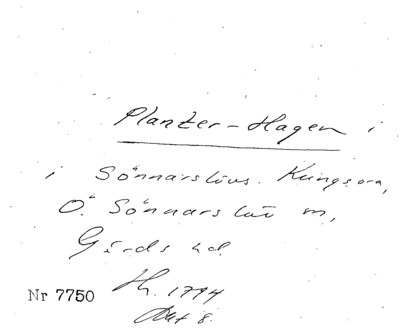 Planter-Hagen i
i Sönnarslövs. Kungsora,
Ö. Sönnarslöv m,
Gärds hd.
Nr 7750 Th. 1794
Akt 8.